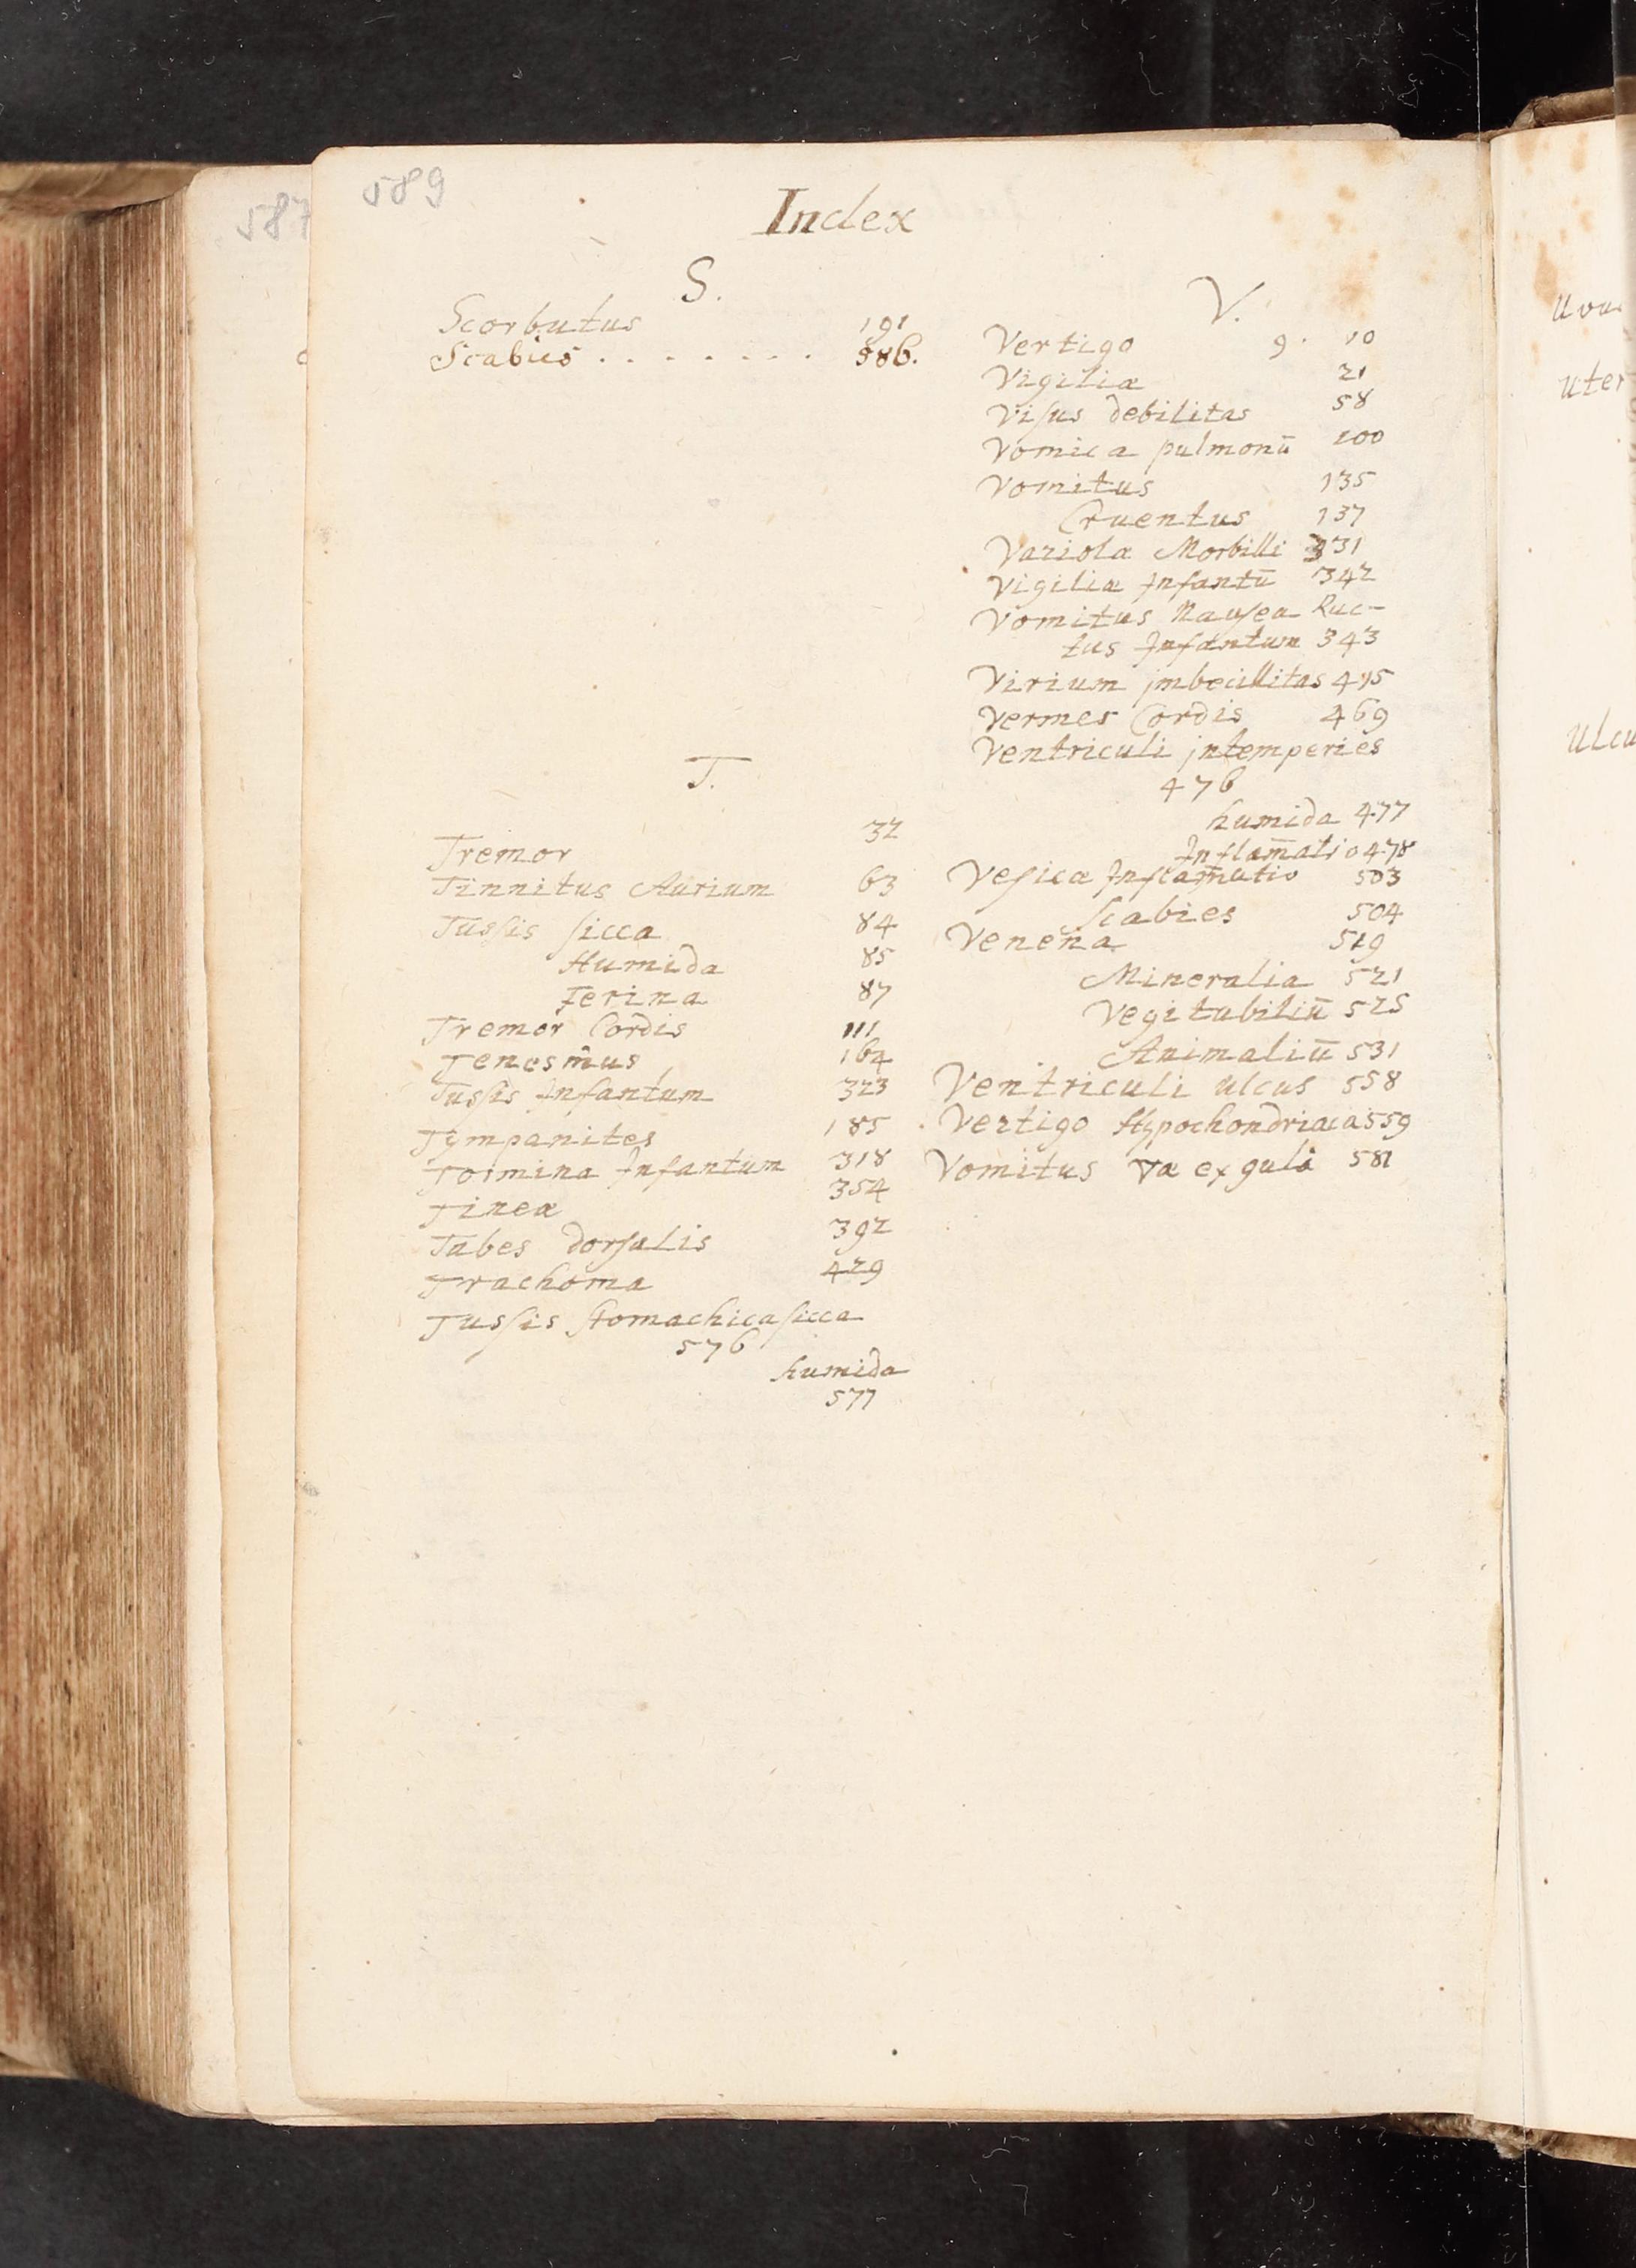 589
587
Index
S.
Scorbutus 191
Scabies . . . . . . . . 586.
T.
Tremor 32
Tinnitus Aurium 63
Tussis sicca 84
Humida 85
Ferina 87
Tremor Cordis 111
Tenesmus 164
Tussis Infantum 323
Tympanites 185
Tormina Infantum 318
Tineæ 354
Tabes dorsalis 392
Trachoma 429
Tussis stomachica sicca
576
humida
577
V.
Vertigo 9. 10
Vigiliæ 21
Visus debilitas 58
Vomica pulmonū 100
Vomitus 135
Cruentus 137
Variolæ Morbilli 331
Vigiliæ Infantū 342
Vomitus Nausea Ruc-
tus Infantum 343
Virium jmbecillitas 415
Vermes Cordis 469
Ventriculi jntemperies
476
humida 477
Inflam̄atio 478
Vesicæ Inflam̄atio 503
Scabies 504
Venena 519
Mineralia 521
Vegitabiliū 525
Animaliū 531
Ventriculi ulcus 558
Vertigo Hypochondriaca 559
Vomitus ex gula 581
uter
Ulcu